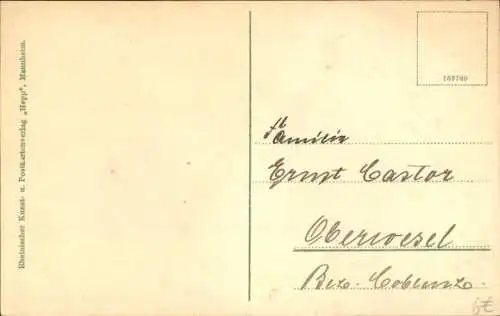 Rheinischer Kunst- u. Postkartenverlag „Hepp", Mannheim.
169760
Familie
Ernst Castor
Oberwesel
Bez. Coblenz.